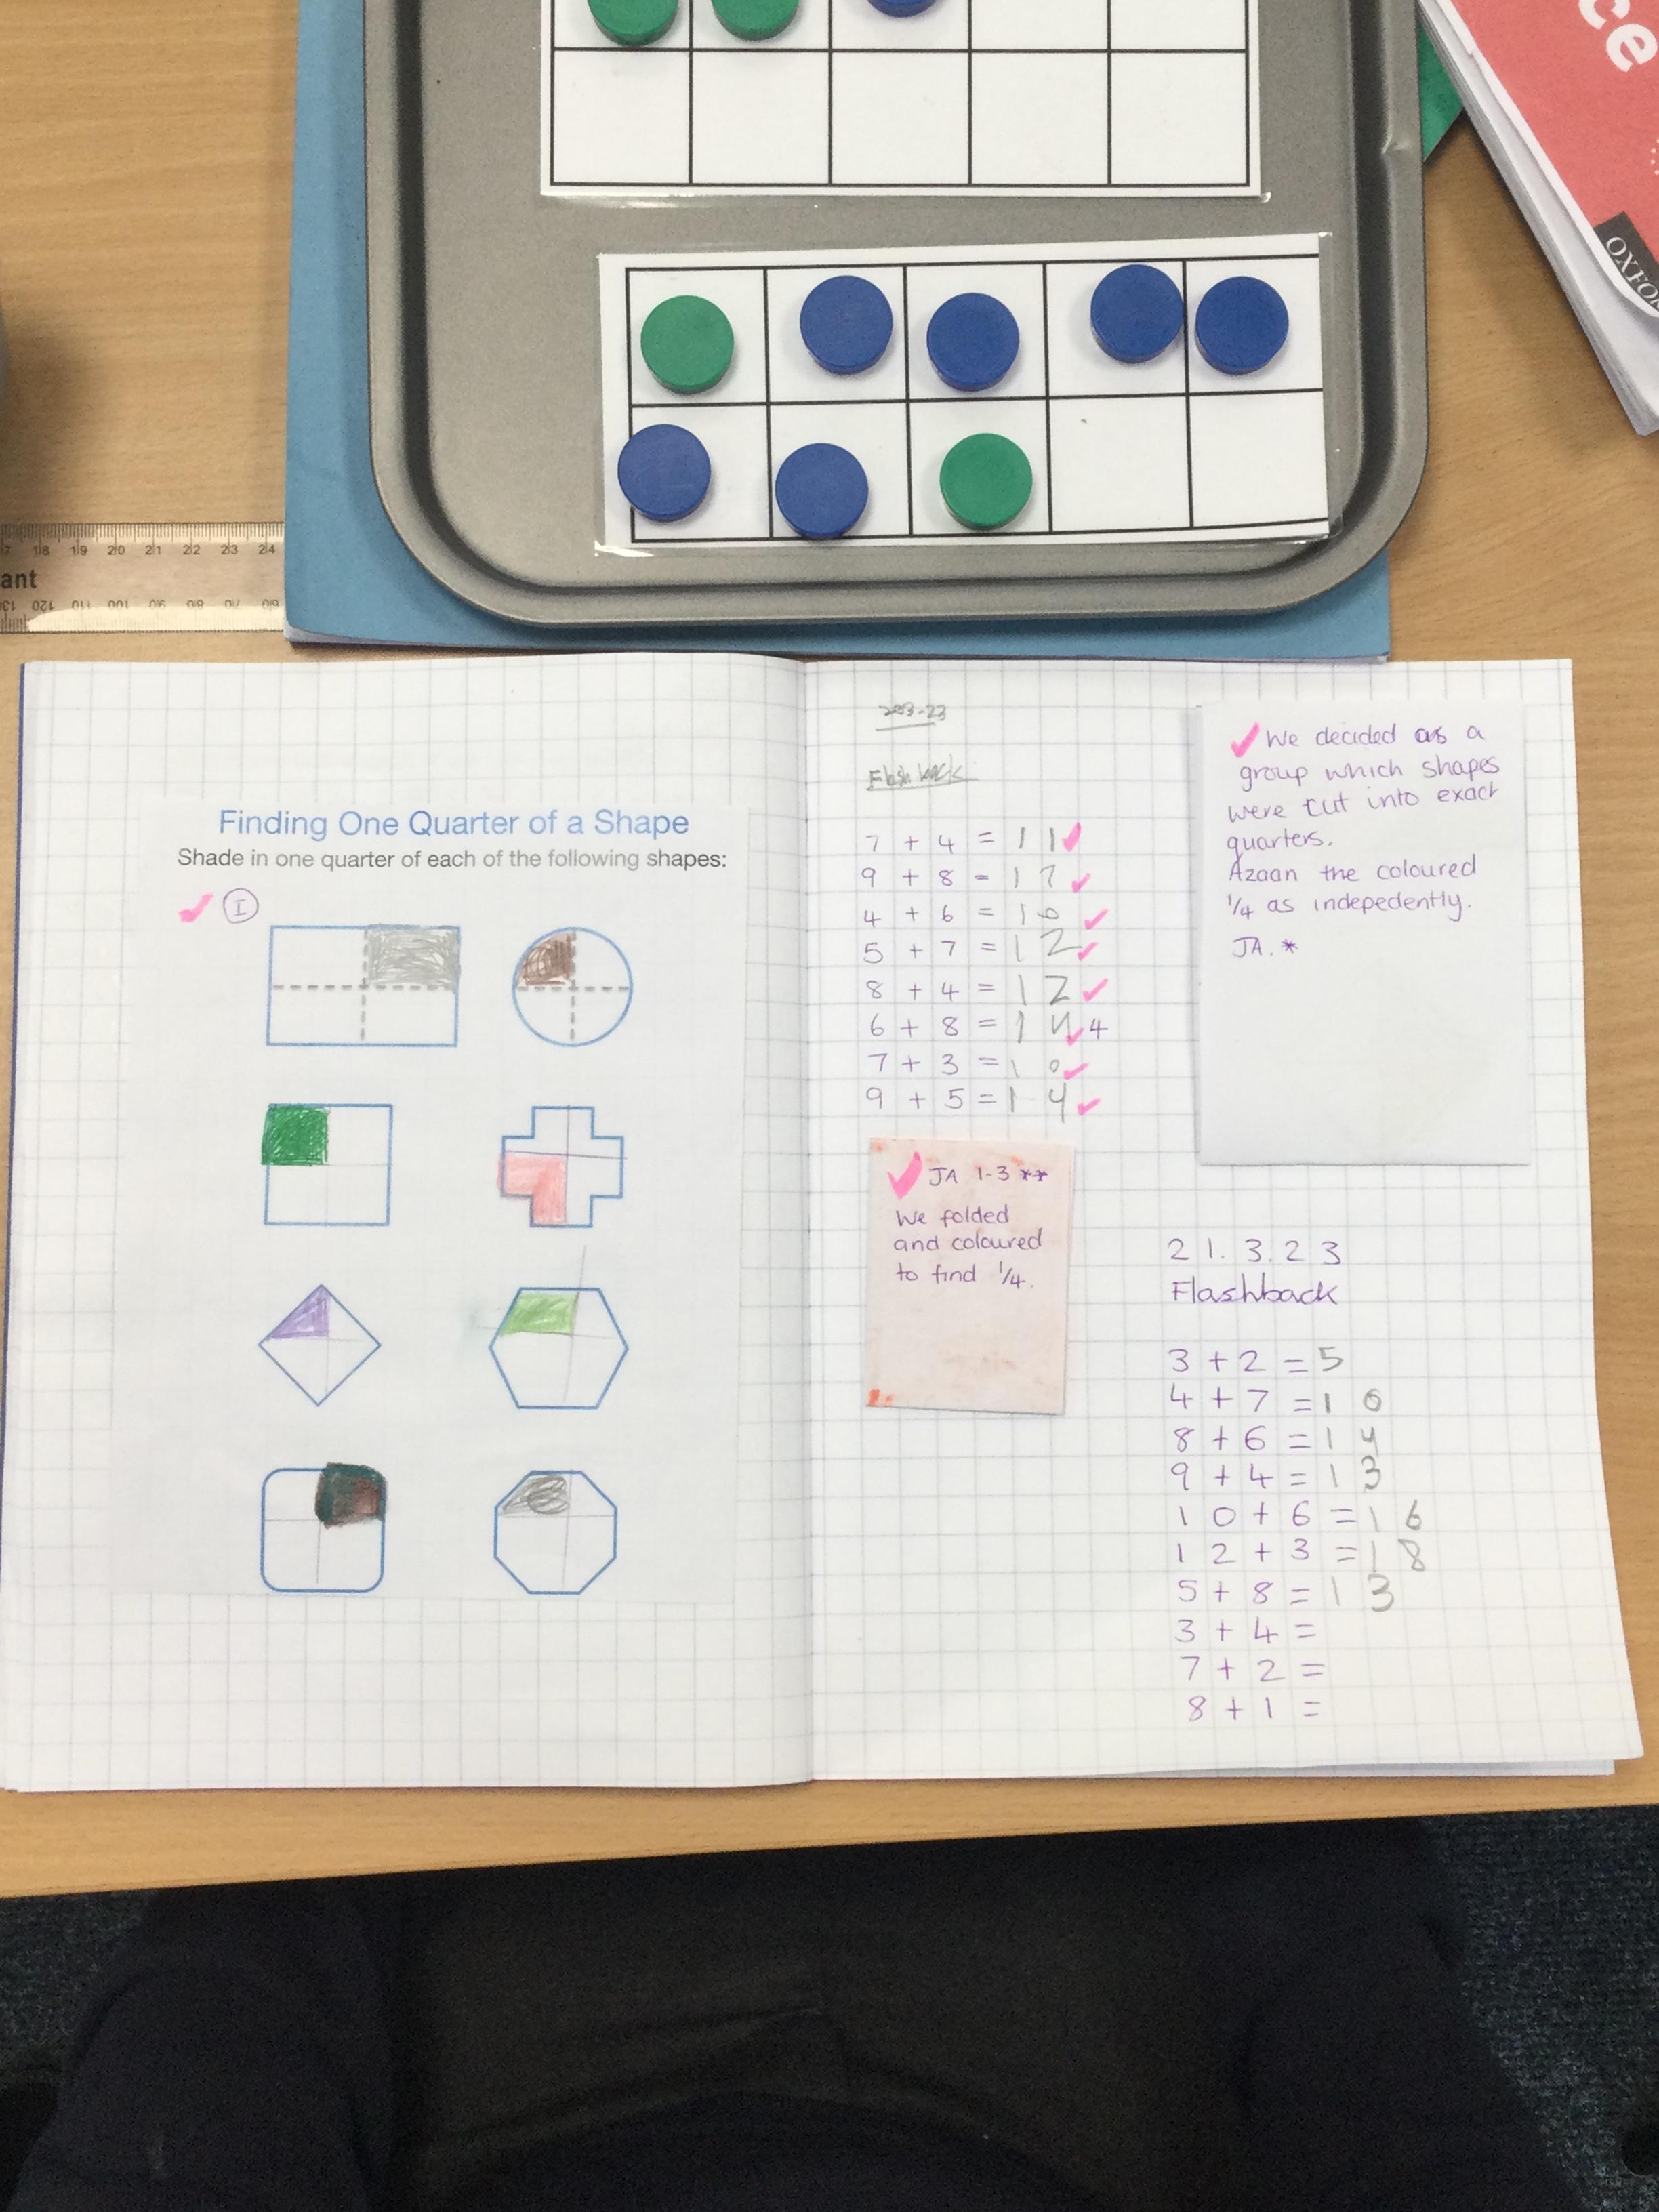 ce
OXFO
18 19 20 21 22 23 24
ant
130 120 110 100 90 80 70 60
Finding One Quarter of a Shape
Shade in one quarter of each of the following shapes:
I
Flashback
7 + 4 = 11
9 + 8 = 17
4 + 6 = 10
5 + 7 = 12
8 + 4 = 12
6 + 8 = 14 4
7 + 3 = 10
9 + 5 = 14
We decided as a
group which shapes
were cut into exact
quarters.
Azaan the coloured
1/4 as indepedently.
JA. *
JA 1-3 **
We folded
and coloured
to find 1/4.
21.3.23
Flashback
3 + 2 = 5
4 + 7 = 10
8 + 6 = 14
9 + 4 = 13
10 + 6 = 16
12 + 3 = 18
5 + 8 = 13
3 + 4 =
7 + 2 =
8 + 1 =